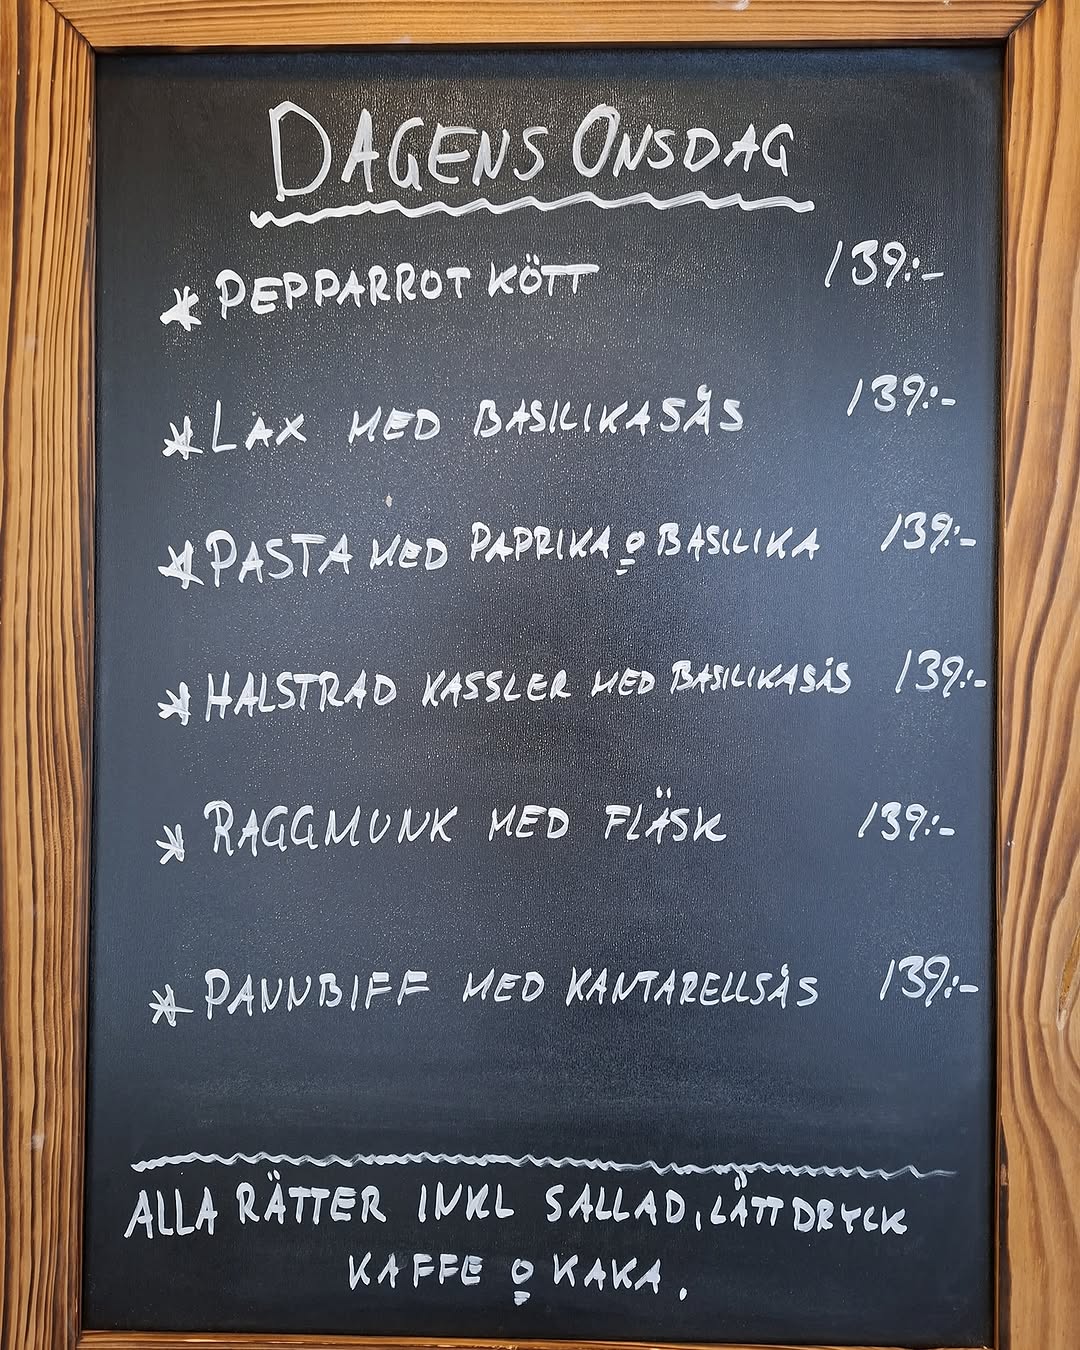 DAGENS ONSDAG
* PEPPARROT KÖTT 139:-
* LAX MED BASILIKASÅS 139:-
* PASTA MED PAPRIKA o BASILIKA 139:-
* HALSTRAD KASSLER MED BASILIKASÅS 139:-
* RAGGMUNK MED FLÄSK 139:-
* PANNBIFF MED KANTARELLSÅS 139:-
ALLA RÄTTER INKL SALLAD, LÄTTDRYCK
KAFFE o KAKA.